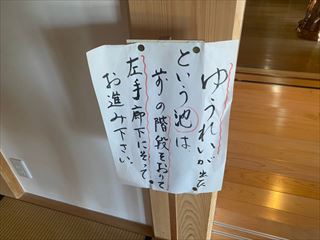 ゆうれいが出た
という池は
前の階段をおりて
左手廊下にそって
お進み下さい。